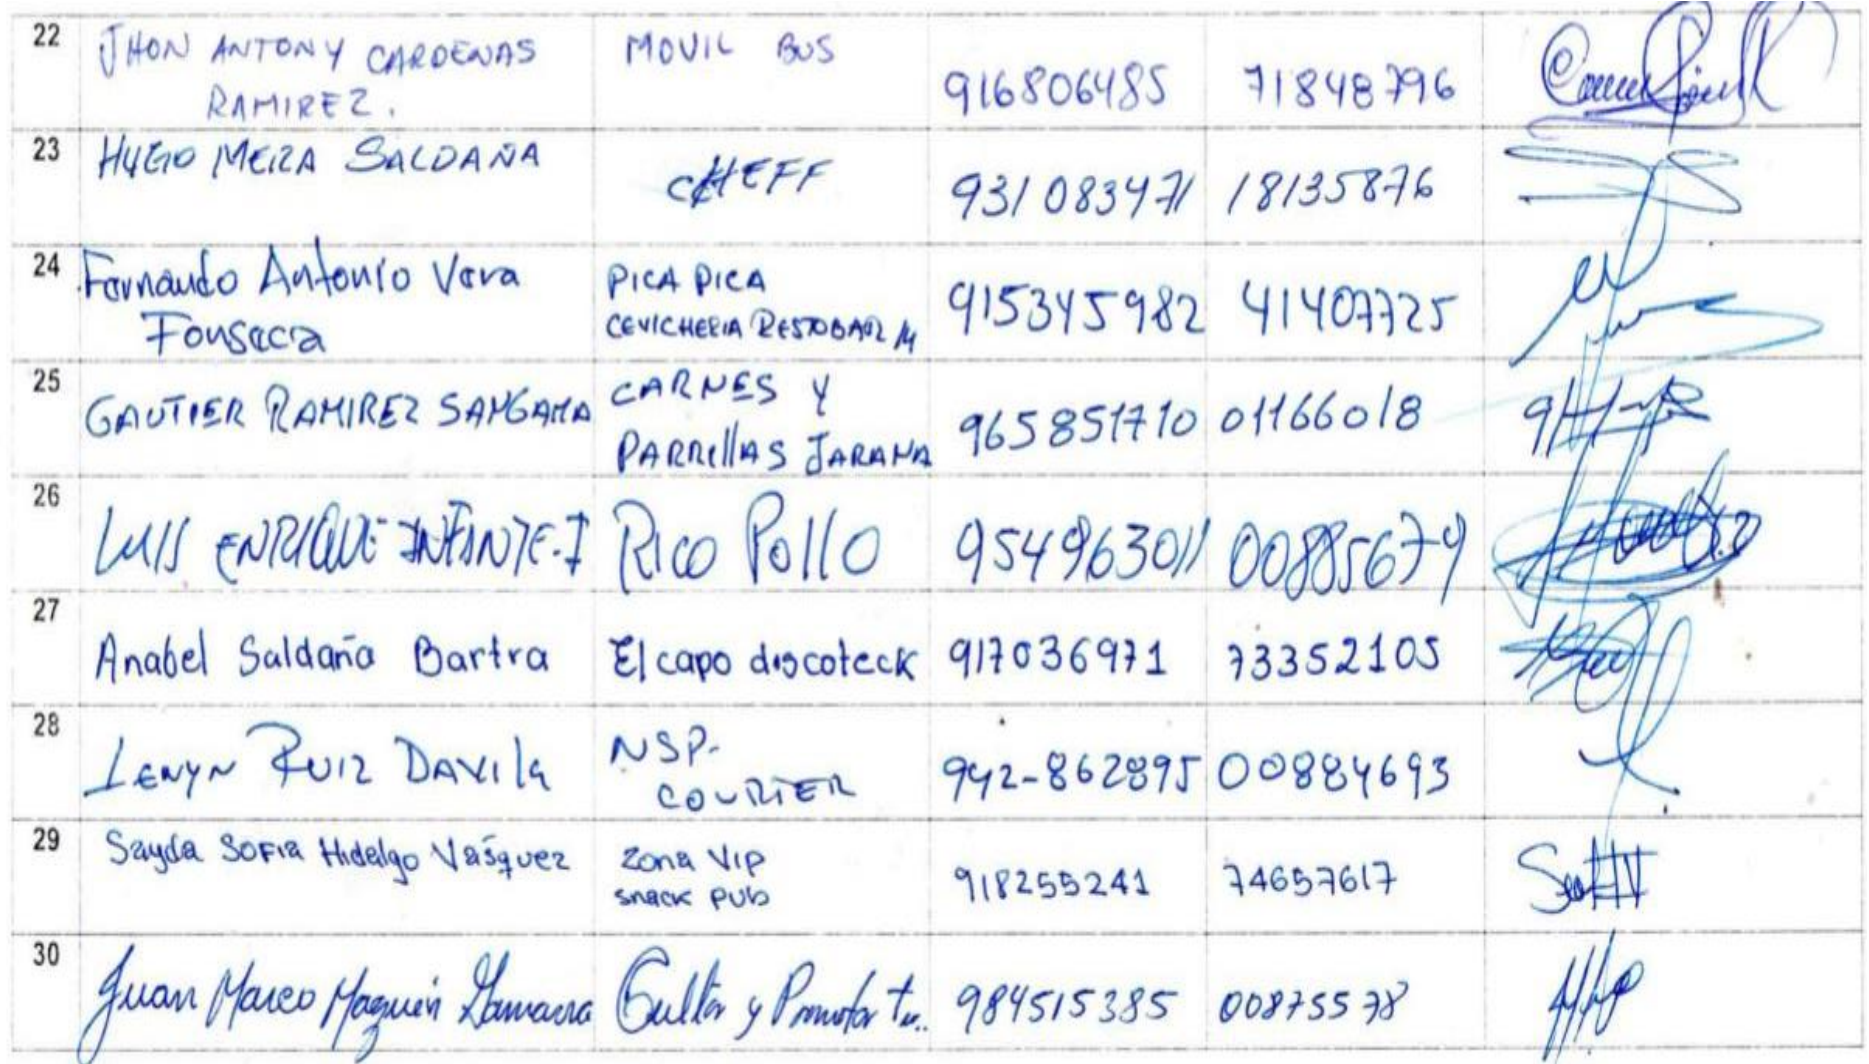 22 JHON ANTONY CARDENAS RAMIREZ. MOVIL BUS 916806485 71848796
23 HUGO MEZA SALDAÑA CHEFF 931083471 18135876
24 Fernando Antonio Vera Fonseca PICA PICA CEVICHERIA RESTOBAR 915345982 41407725
25 GAUTIER RAMIREZ SANGAMA CARNES Y PARRIllAS JARANA 965851710 01166018
26 LUIS ENRIQUE INFANTE.I RICO POLLO 954963011 00885679
27 Anabel Saldaña Bartra El capo discoteck 917036971 73352105
28 LENYN RUIZ DAVILA NSP- COURIER 942-862895 00884693
29 Sayda SOFIA Hidalgo Vásquez Zona VIP snack PUB 918255241 74657617
30 Juan Marco Gamarra y Promotor 984515385 00875578